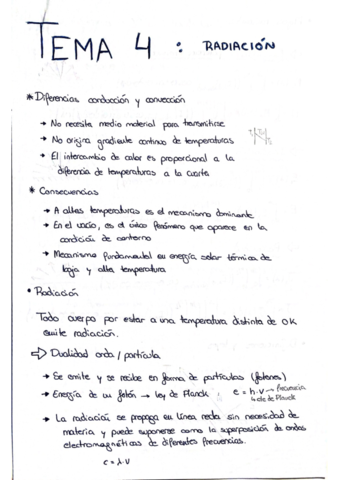 TEMA 4 : RADIACIÓN
* Diferencias conducción y convección
→ No necesita medio material para transmitirse
→ No origina gradiente continuo de temperaturas
→ El intercambio de calor es proporcional a la
diferencia de temperaturas a la cuarta
* Consecuencias
→ A altas temperaturas es el mecanismo dominante
→ En el vacío, es el único fenómeno que aparece en la
condición de contorno
→ Mecanismo fundamental en energía solar térmica de
baja y alta temperatura
• Radiación
Todo cuerpo por estar a una temperatura distinta de 0K
emite radiación.
⇒ Dualidad onda / partícula
→ Se emite y se recibe en forma de partículas (fotones)
→ Energía de un fotón → Ley de Planck e = h·ν → frecuencia
↳ cte de Planck
→ La radiación se propaga en línea recta sin necesidad de
materia y puede suponerse como la superposición de ondas
electromagnéticas de diferentes frecuencias.
c = λ·ν